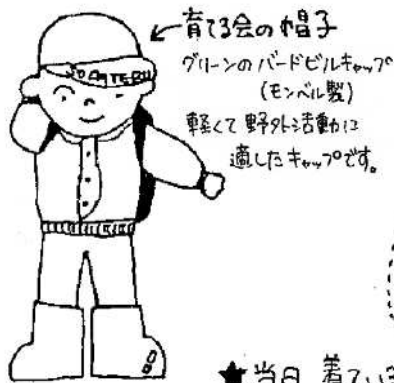 育てる会の帽子
グリーンのバードビルキャップ
(モンベル製)
軽くて野外活動に
適したキャップです。
SODATERU